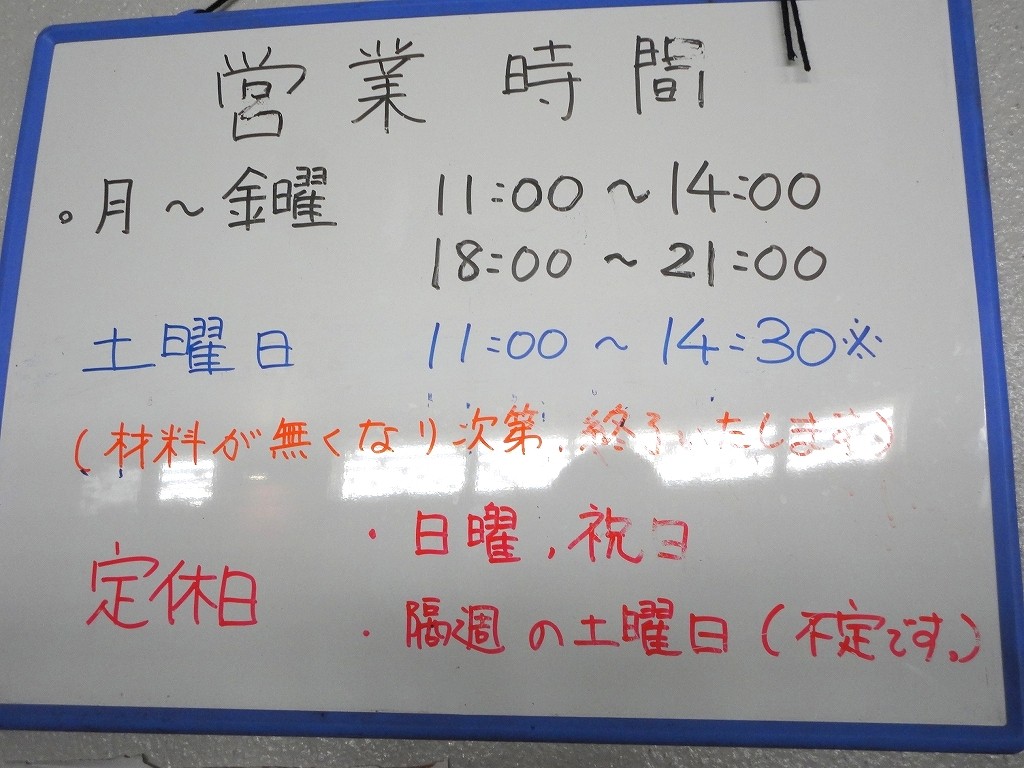 営業時間
。月～金曜 11:00～14:00
18:00～21:00
土曜日 11:00～14:30※
(材料が無くなり次第、終了いたします。)
定休日 ・日曜、祝日
・隔週の土曜日(不定です。)